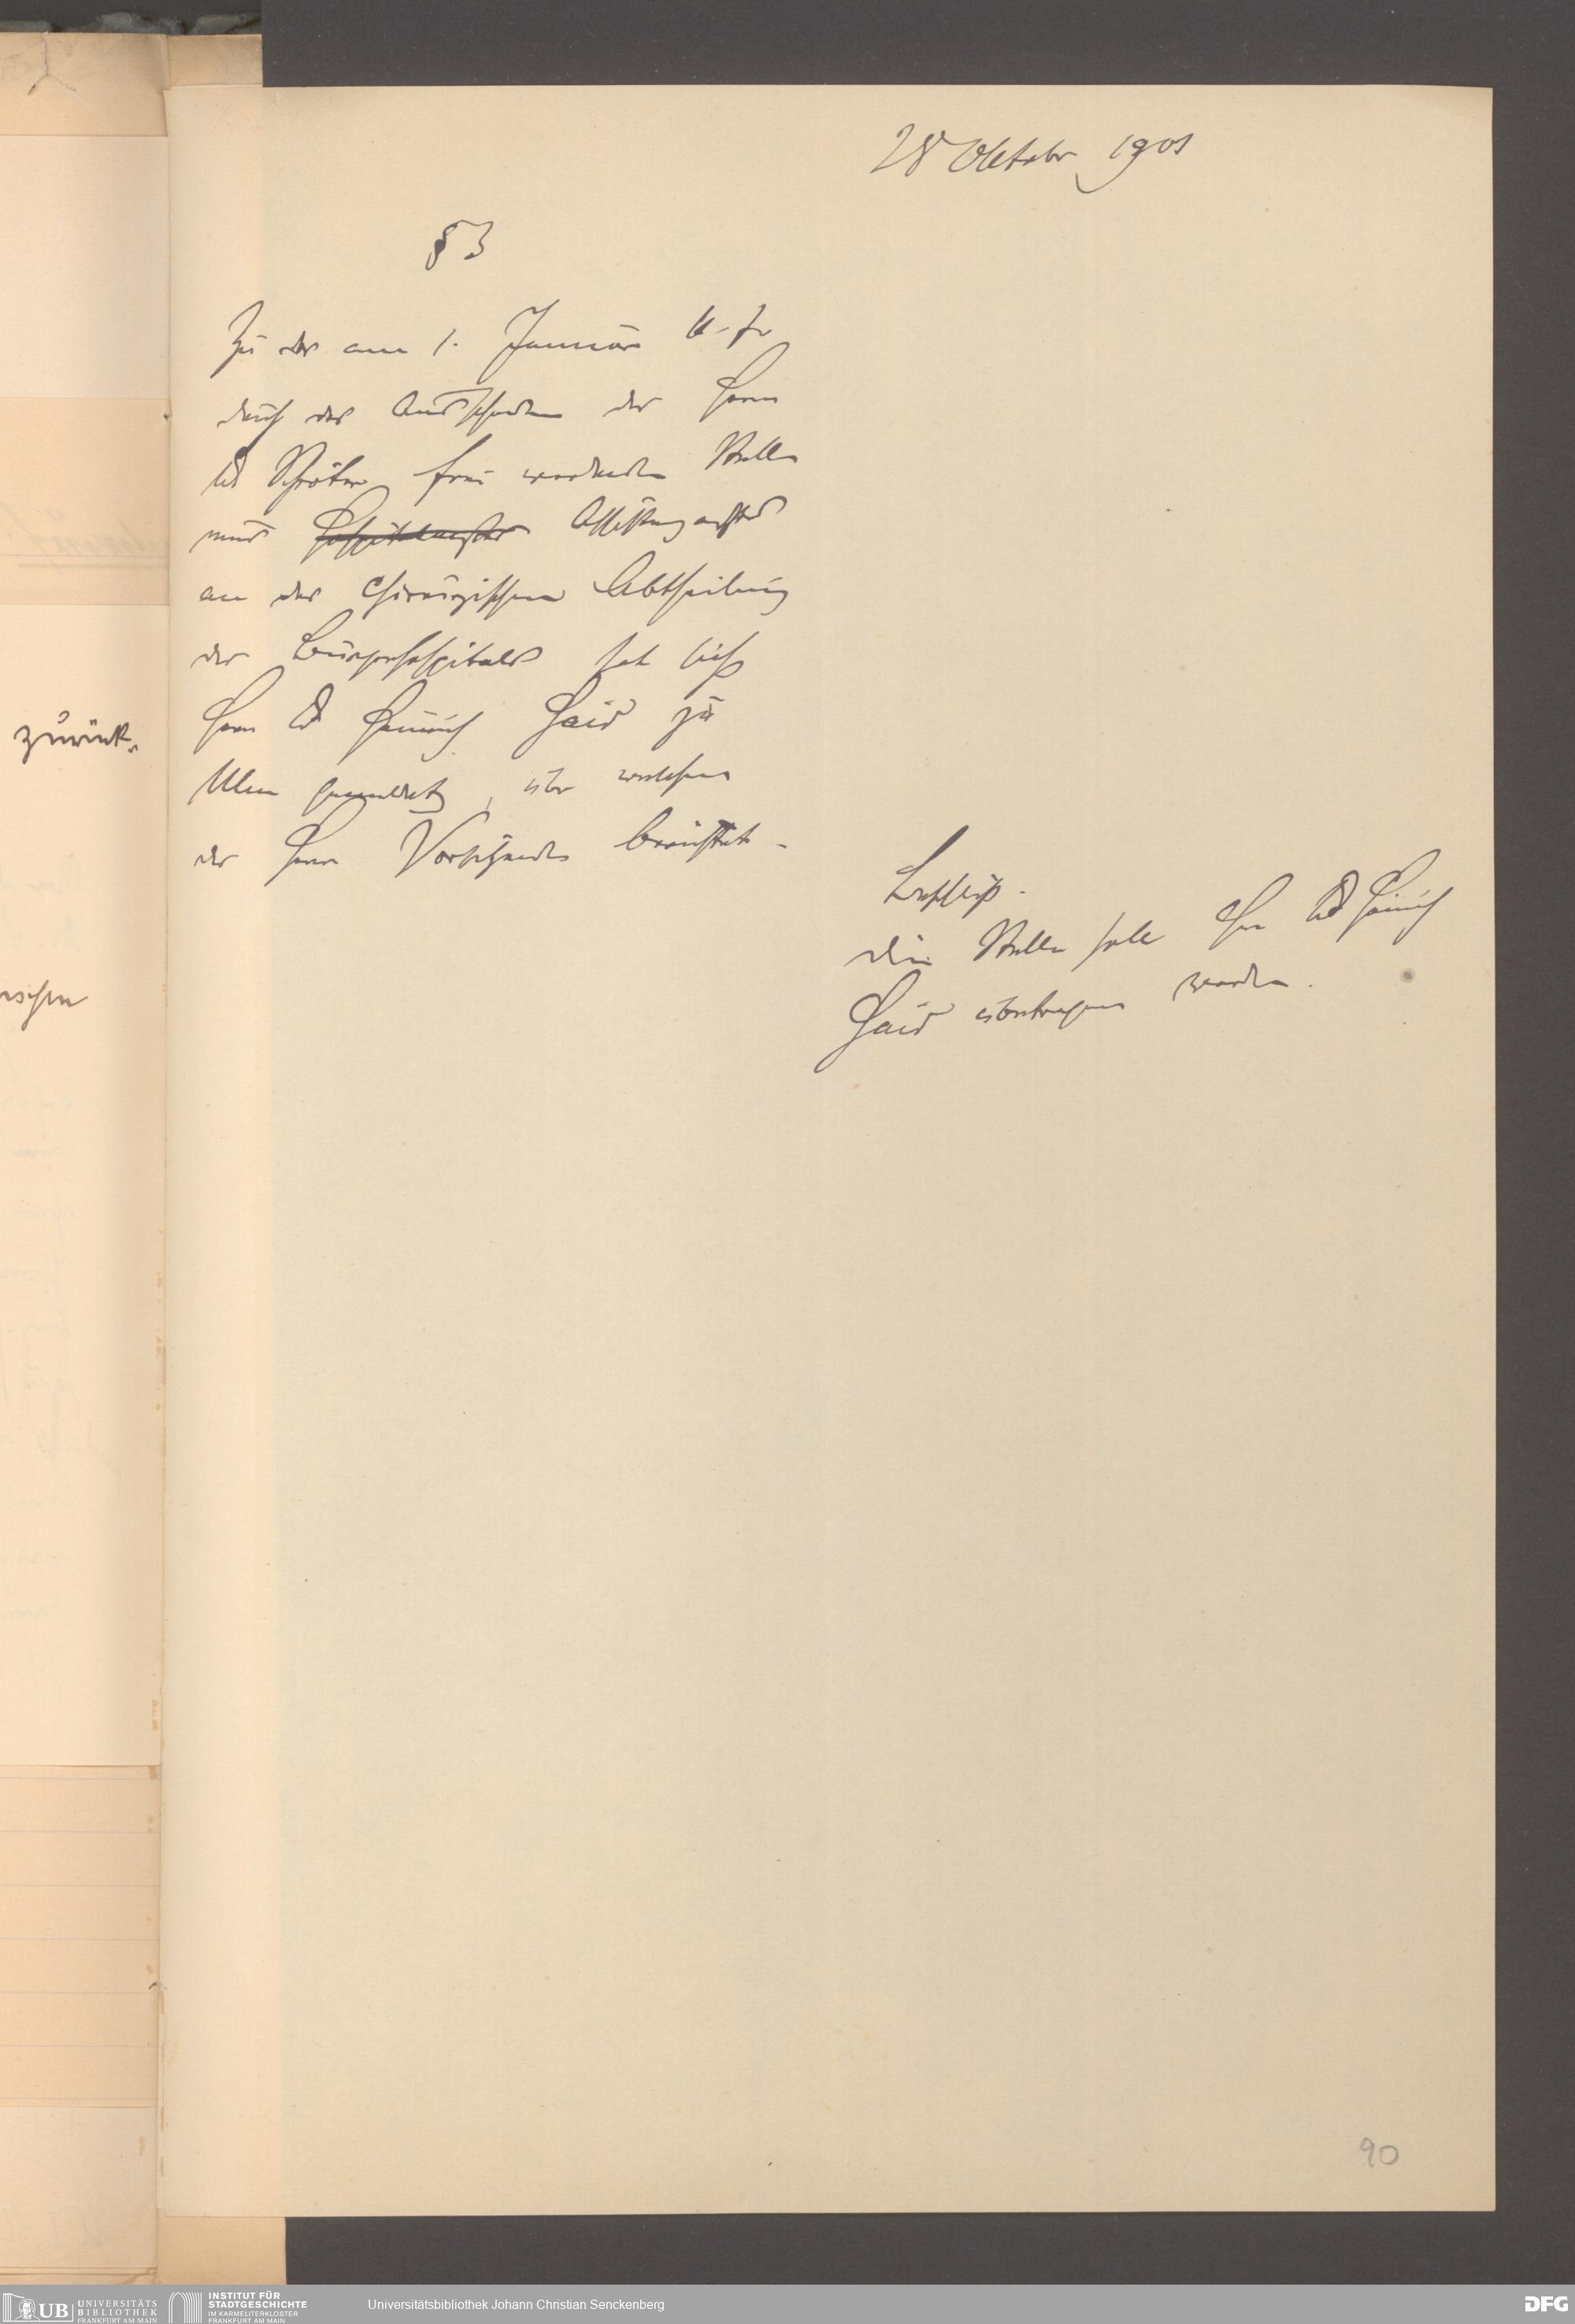 28 Oktober 1901
§ 3
Zu der am 1. Januar k. Js
durch das Ausscheiden des Herrn
Dr Schröter frei werdenden Stelle
eines Hospitalarztes Assistenzarztes
an der chirurgischen Abtheilung
des Bürgerhospitals hat sich
Herr Dr Heinrich zu
gemeldet, über welchen
der Herr Vorsitzende berichtet.
Beschluß.
Die Stelle soll Herrn Dr Heinrich
übertragen werden.
zurück.
90
UB UNIVERSITÄTS
BIBLIOTHEK
FRANKFURT AM MAIN
INSTITUT FÜR
STADTGESCHICHTE
IM KARMELITERKLOSTER
FRANKFURT AM MAIN
Universitätsbibliothek Johann Christian Senckenberg
DFG